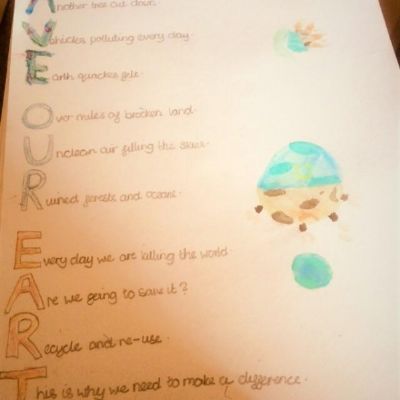 Another tree cut down.
Vehicles polluting every day.
Earth quackes
Over miles of brocken land.
Unclean air filling the skies.
Ruined forests and oceans.
Every day we are killing the world.
Are we going to save it?
Recycle and re-use.
This is why we need to make a difference.